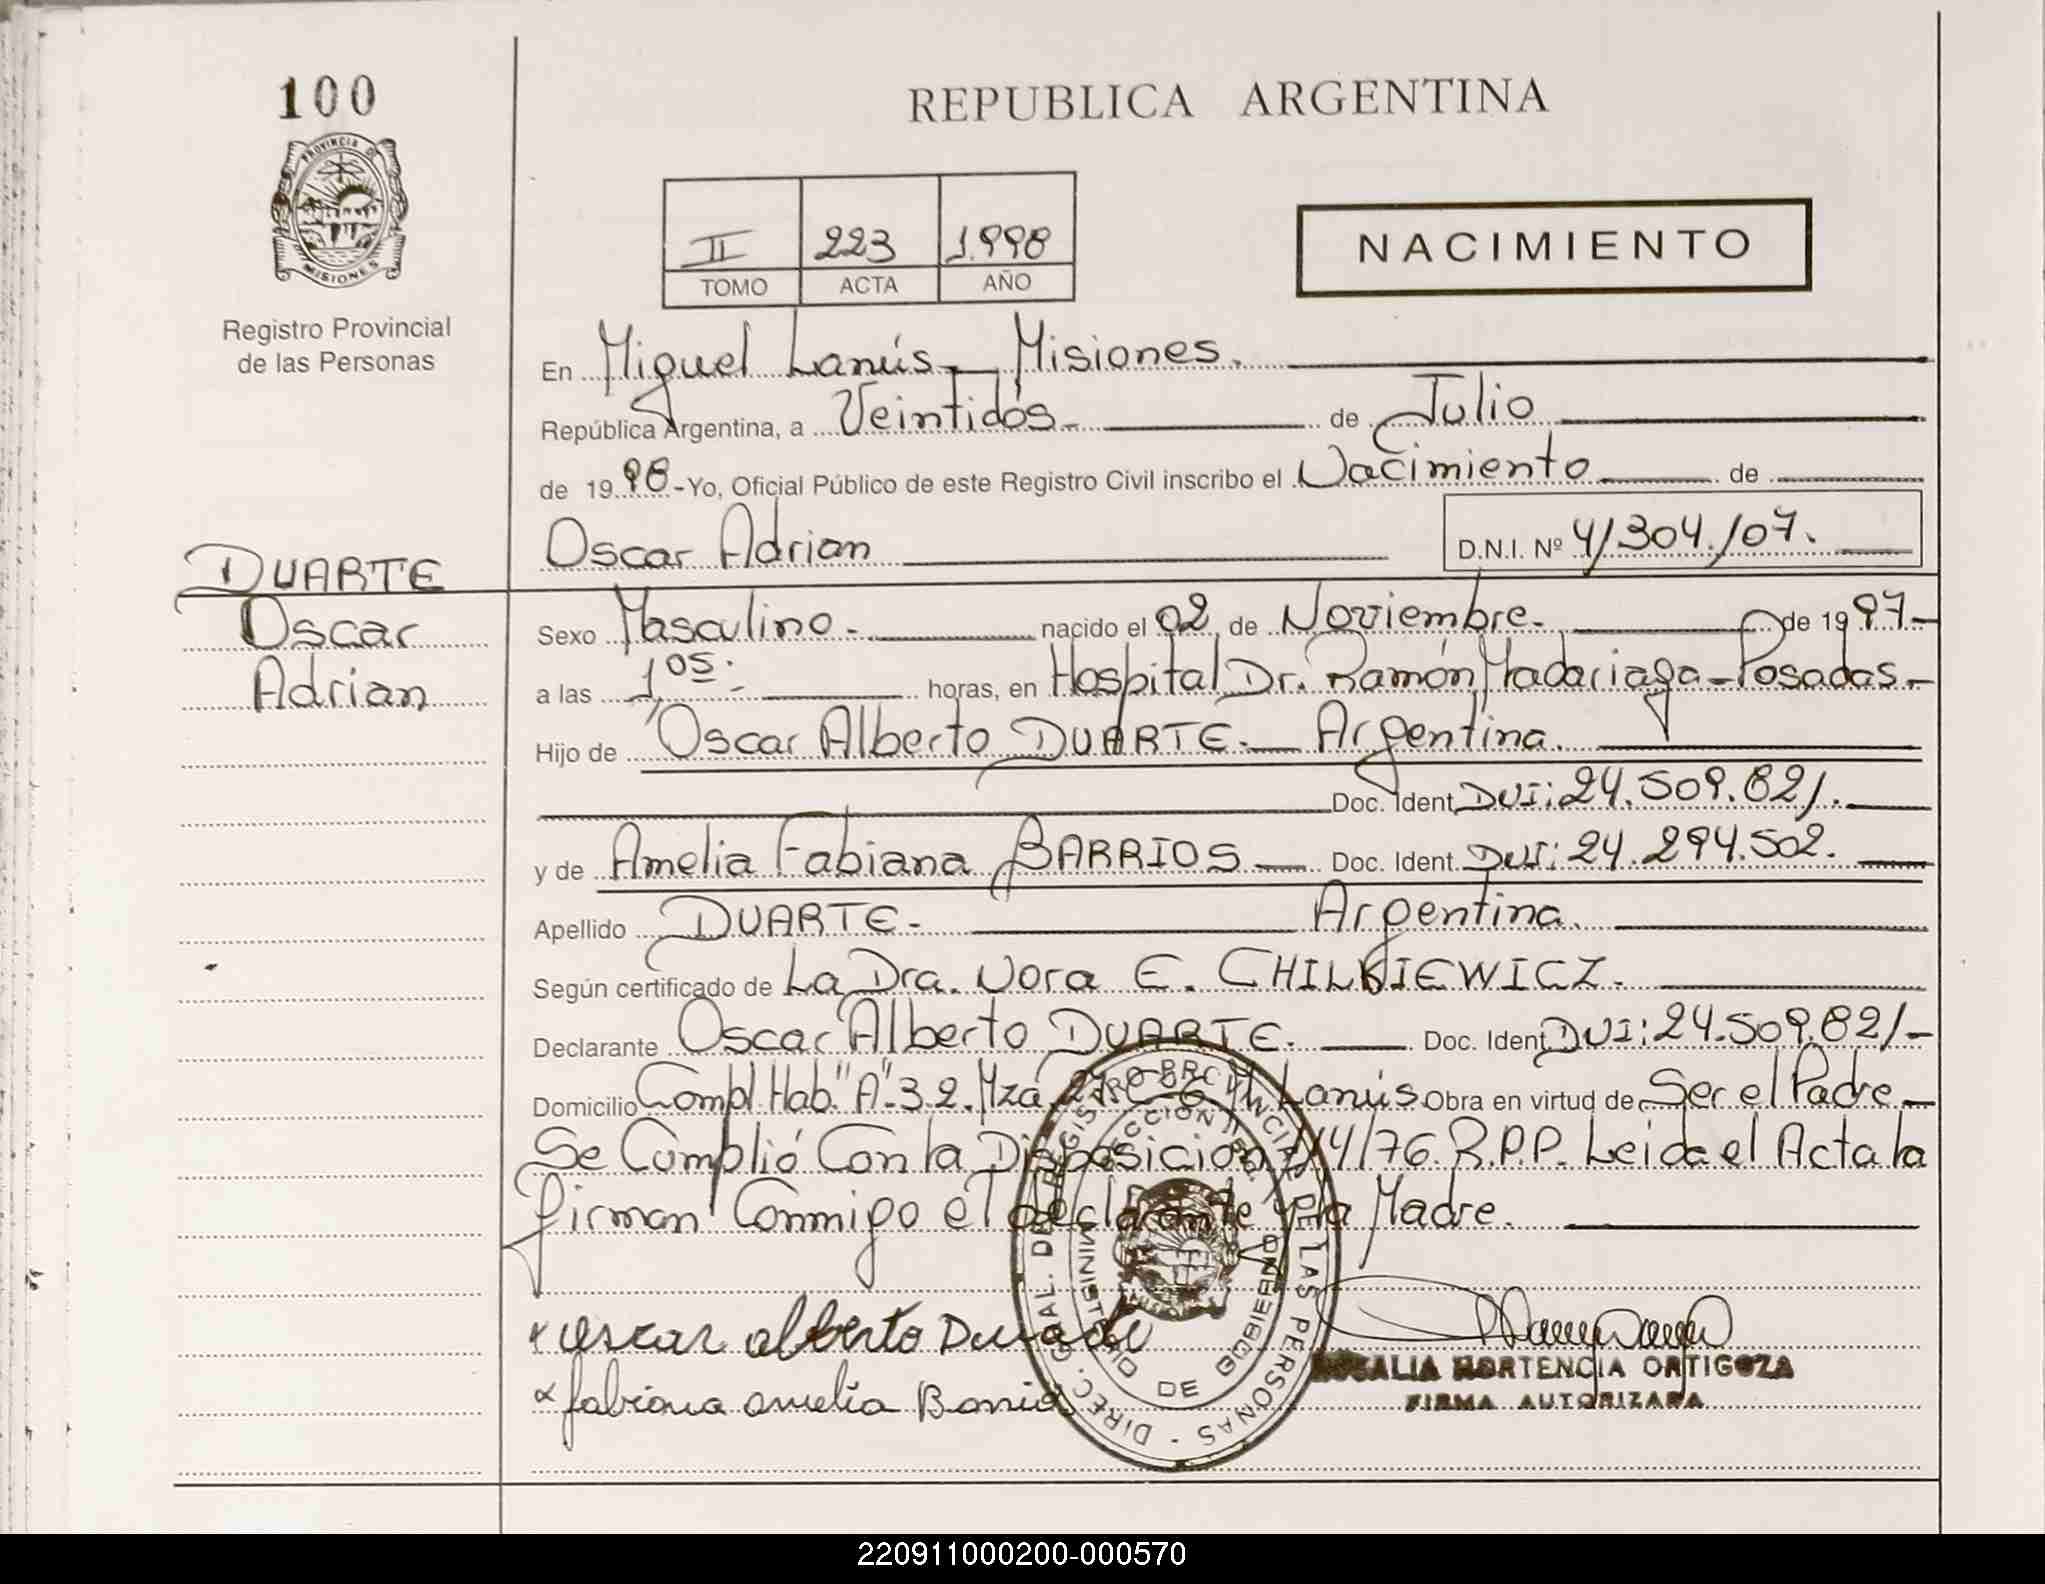 100
REPUBLICA ARGENTINA
PROVINCIA D
MISIONES
Registro Provincial
de las Personas
II 223 1.998
TOMO ACTA AÑO
NACIMIENTO
En Miguel Lanús - Misiones.
República Argentina, a Veintidós - de Julio
de 1998 - Yo, Oficial Público de este Registro Civil inscribo el Nacimiento de
Oscar Adrian D.N.I. Nº 41304107.
DUARTE
Oscar
Adrian
Sexo Masculino - nacido el 02 de Noviembre - de 1997 -
a las 1,05. - horas, en Hospital Dr. Ramón Madariaga - Posadas -
Hijo de Oscar Alberto DUARTE - Argentina.
Doc. Ident. DNI: 24.509.821.
y de Amelia Fabiana BARRIOS - Doc. Ident. DNI: 24.294.502.
Apellido DUARTE - Argentina.
Según certificado de La Dra. Nora E. CHILKIEWICZ.
Declarante Oscar Alberto DUARTE. Doc. Ident. DNI: 24.509.821 -
Domicilio Compl. Hab. "A" 3.2. Mza M. Lanús Obra en virtud de Ser el Padre -
Se Cumplió Con la Disposición 114/76 R.P.P. Leida el Acta la
firman Conmigo el declarante y la Madre.
x oscar alberto Duarte
x fabiana amelia Barrios
DIREC. GRAL. DEL REGISTRO PROVINCIAL DE LAS PERSONAS -
MINISTERIO DE GOBIERNO
ROSALIA HORTENCIA ORTIGOZA
FIRMA AUTORIZADA
220911000200-000570